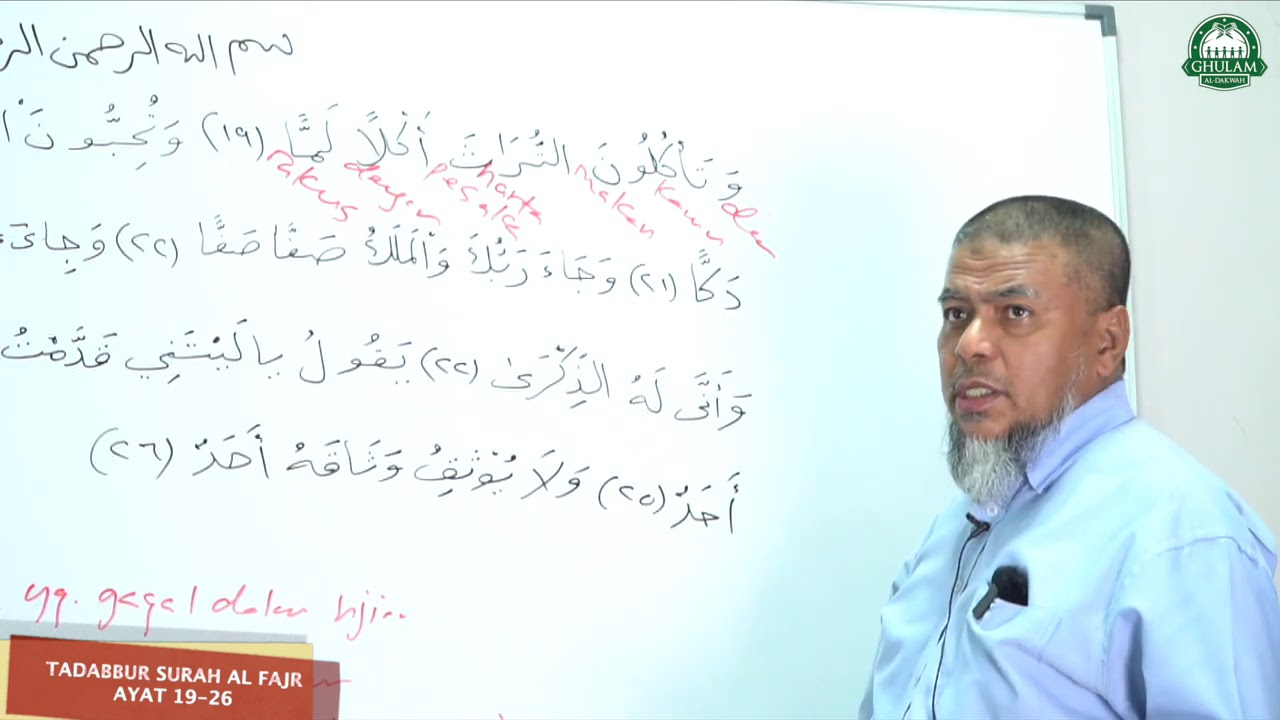 بسم الله الرحمن
وَتَأْكُلُونَ التُّرَاثَ أَكْلًا لَمًّا (١٩) وَتُحِبُّونَ
dan kamu makan harta pesaka dengan rakus
دَكًّا (٢١) وَجَاءَ رَبُّكَ وَالْمَلَكُ صَفًّا صَفًّا (٢٢) وَجِاىءَ
وَأَنَّى لَهُ الذِّكْرَىٰ (٢٣) يَقُولُ يالَيْتَنِي قَدَّمْتُ
أَحَدٌ (٢٥) وَلَا يُوْثِقُ وَثَاقَهُ أَحَدٌ (٢٦)
yg. gagal dalam uji..
TADABBUR SURAH AL FAJR
AYAT 19-26
GHULAM
AL-DAKWAH